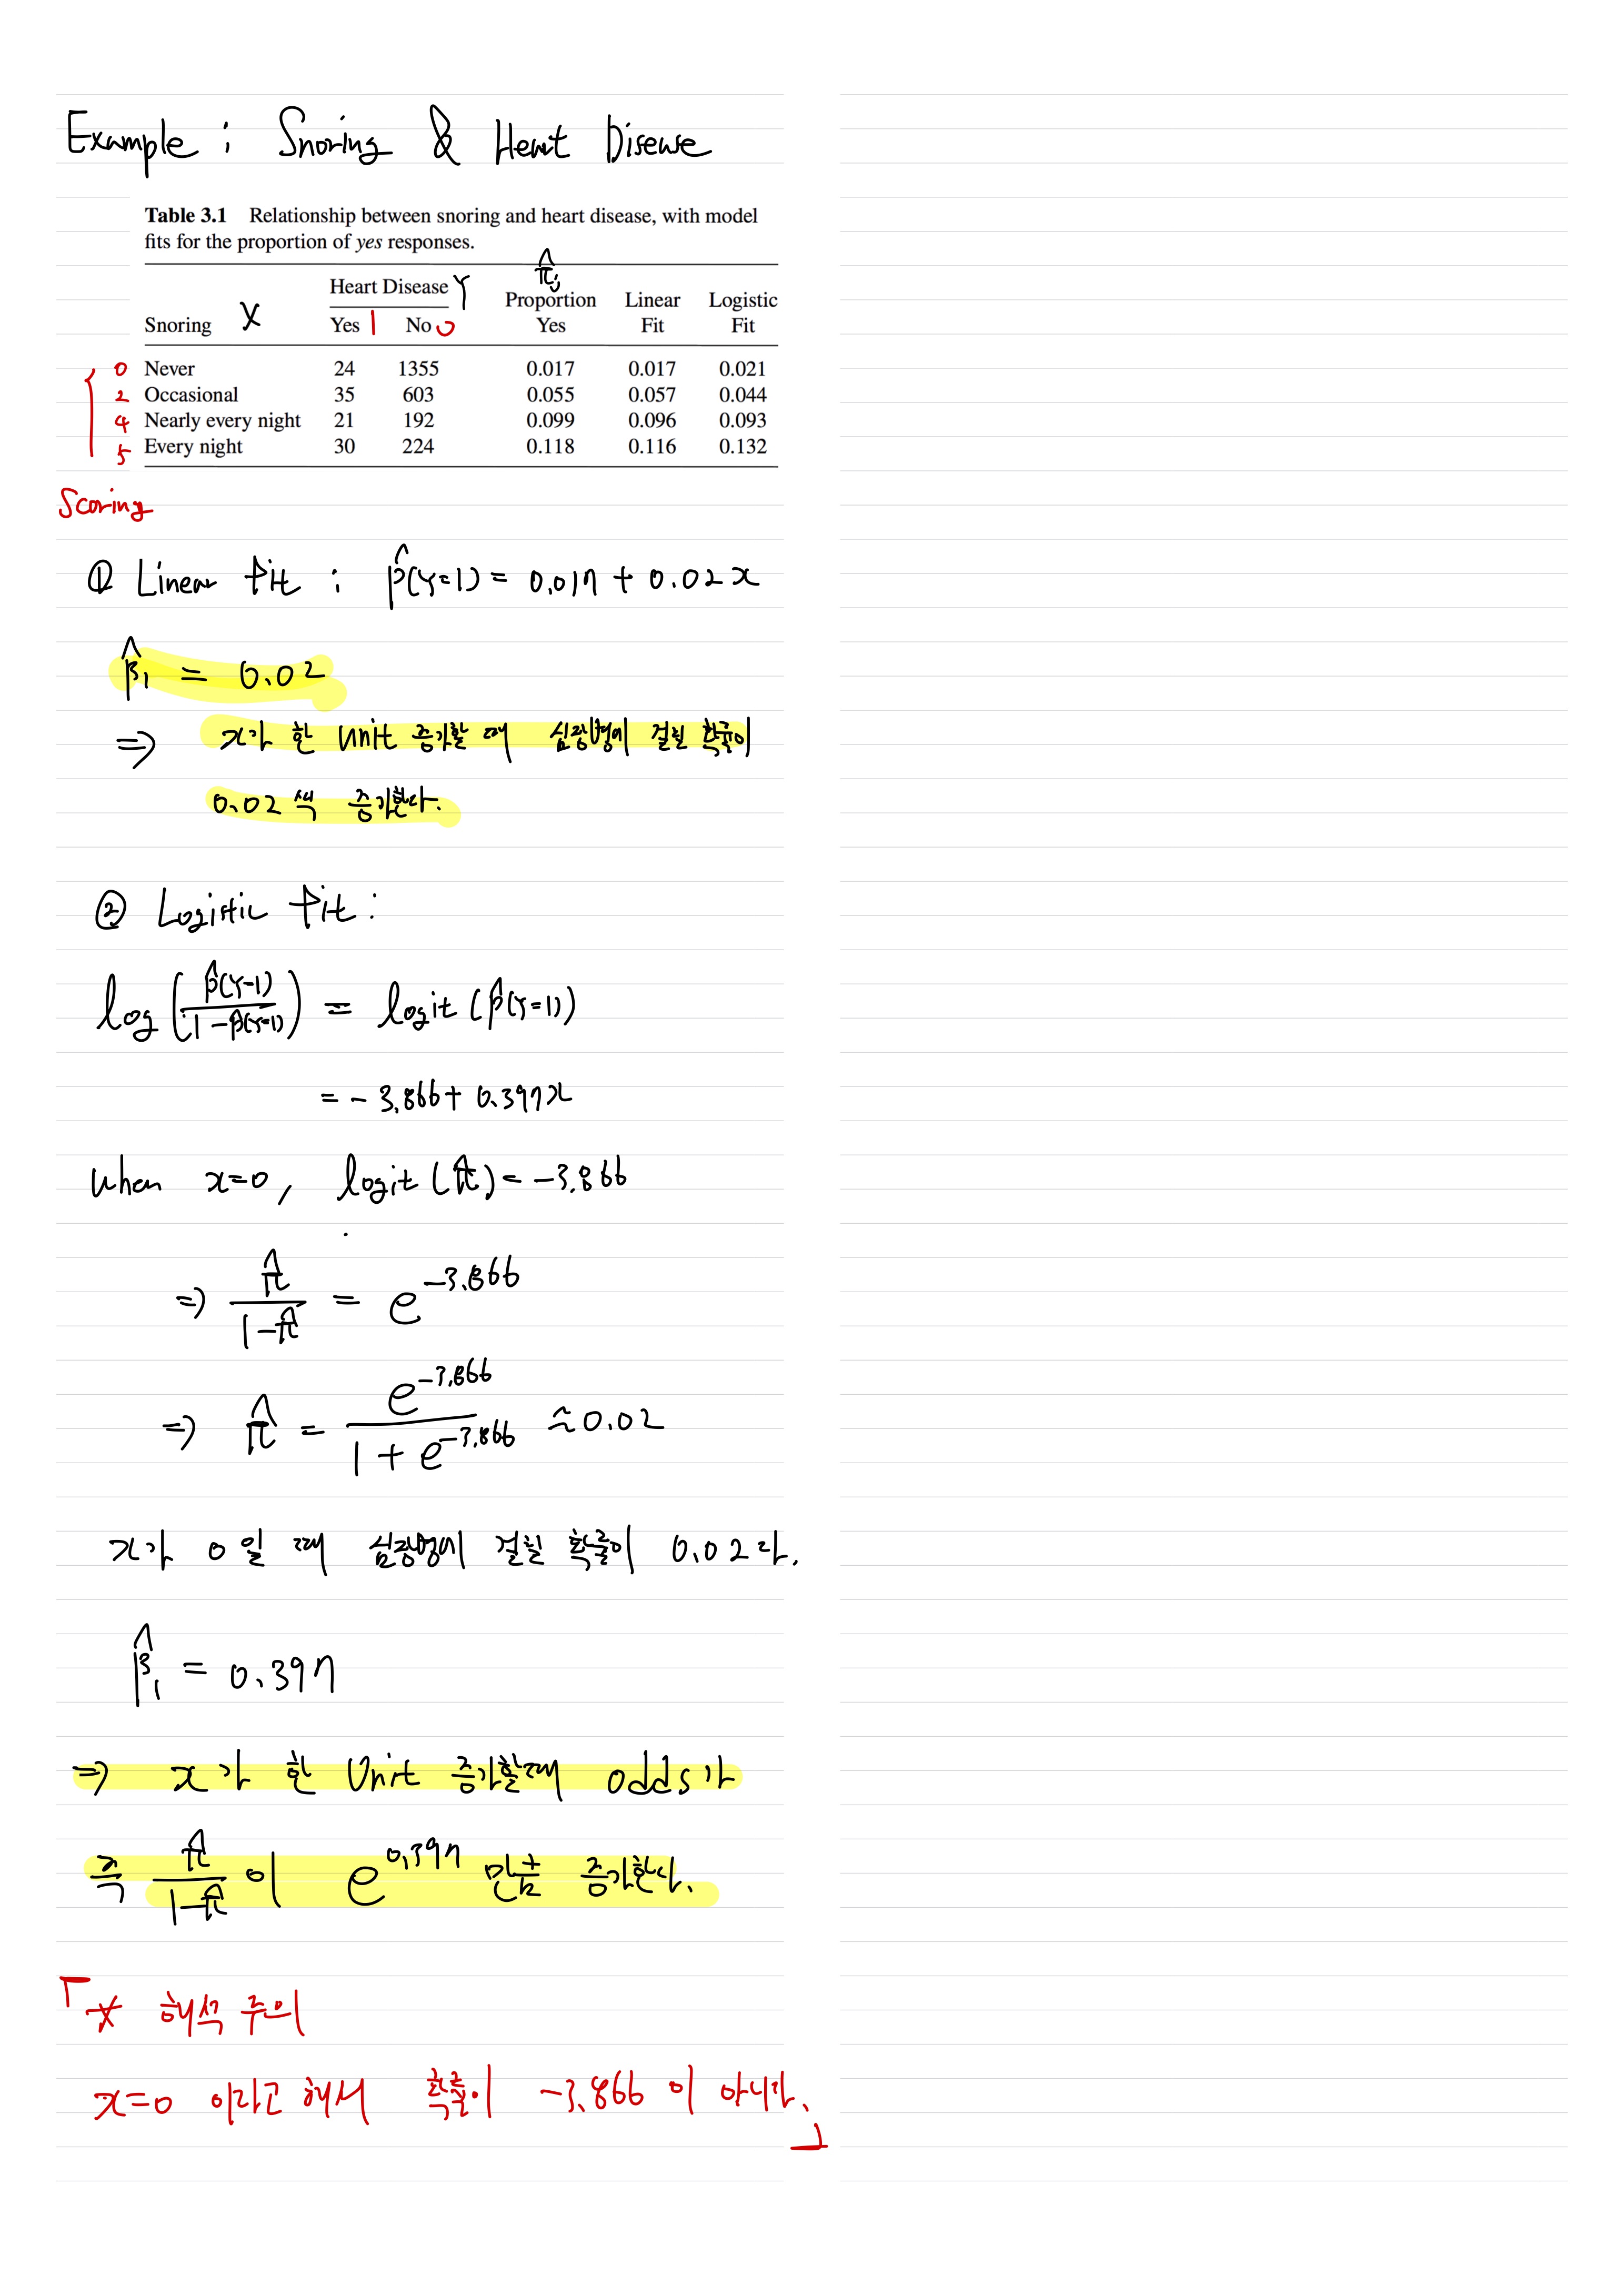 Example : Snoring & Heart Disease
Table 3.1 Relationship between snoring and heart disease, with model
fits for the proportion of yes responses.
Heart Disease Y π̂ᵢ
Proportion Linear Logistic
Snoring X Yes 1 No 0 Yes Fit Fit
0 Never 24 1355 0.017 0.017 0.021
2 Occasional 35 603 0.055 0.057 0.044
4 Nearly every night 21 192 0.099 0.096 0.093
5 Every night 30 224 0.118 0.116 0.132
Scoring
① Linear fit : p̂(Y=1) = 0.017 + 0.02x
β̂₁ = 0.02
⇒ x가 한 unit 증가할 때 심장병에 걸릴 확률이
0.02 씩 증가한다.
② Logistic fit :
log(p̂(Y=1) / 1-p̂(Y=1)) = logit(p̂(Y=1))
= -3.866 + 0.397x
When x=0, logit(π̂) = -3.866
⇒ π̂ / 1-π̂ = e^-3.866
⇒ π̂ = e^-3.866 / 1+e^-3.866 ≈ 0.02
x가 0일 때 심장병에 걸릴 확률이 0.02다.
β̂₁ = 0.397
⇒ x가 한 Unit 증가할때 odds가
즉 π̂ / 1-π̂ 이 e^0.397 만큼 증가한다.
「* 해석 주의
x=0 이라고 해서 확률이 -3.866 이 아니다.」